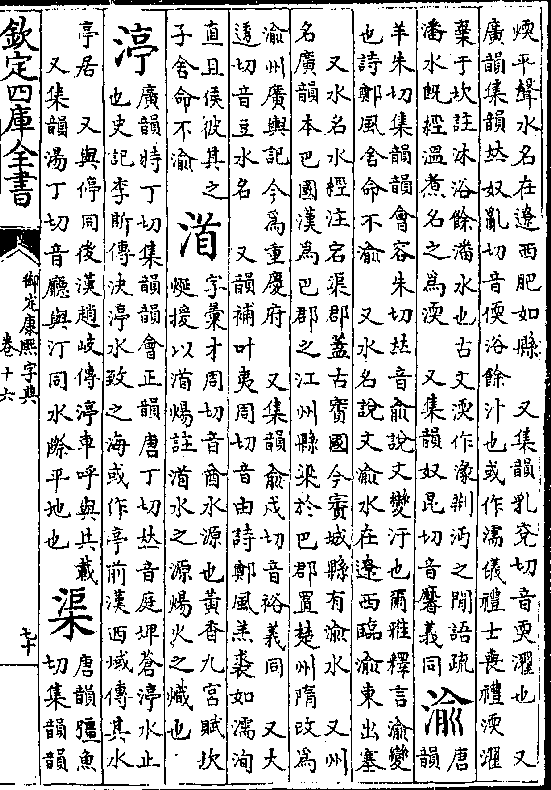 煗平聲水名在遼西肥如縣　又集韻乳兗切音耎濯也　又
廣韻集韻𠀤奴亂切音偄浴餘汁也或作㵖儀禮士喪禮渜濯
棄于坎註沐浴餘潘水也古文渜作湪荆沔之閒語疏
潘水旣經溫煮名之爲渜　又集韻奴昆切音黁義同
渝
唐
韻
羊朱切集韻韻會容朱切𠀤音兪說文變汙也爾雅釋言渝變
也詩鄭風舍命不渝　又水名說文渝水在遼西臨渝東出塞
又水名水經注宕渠郡蓋古賨國今賨城縣有渝水　又州
名廣韻本巴國漢爲巴郡之江州縣梁於巴郡置楚州隋改爲
渝州廣輿記今爲重慶府　又集韻兪戍切音裕義同　又大
透切音豆水名　又韻補叶夷周切音由詩鄭風羔裘如濡洵
直且侯彼其之
子舍命不渝
渞
字彙才周切音酋水源也黃香九宮賦坎
烻援以渞煬註渞水之源煬火之熾也
渟
廣韻特丁切集韻韻會正韻唐丁切𠀤音庭埤蒼渟水止
也史記李斯傳決渟水致之海或作亭前漢西域傳其水
亭居　又與停同後漢趙岐傳渟車呼與共載
又集韻湯丁切音廳與汀同水際平地也
渠
唐韻彊魚
切集韻韻
欽定四庫全書
御定康熙字典
卷十六
七十